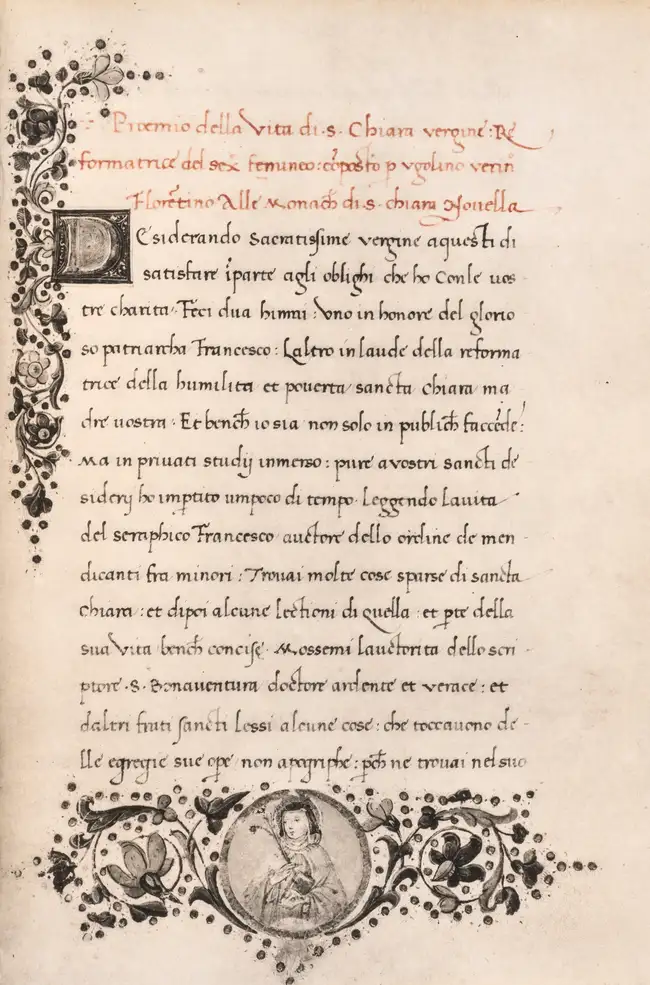 Proemio della Vita di·s· Chiara vergine: Re
formatrice del sex femineo: cōposto p ugolino verinͦ
Florētino Alle Monach̄ di·s· chiara Nouella
Desiderando Sacratissime vergine aquesti di
satisfare īparte agli oblighi che ho Conle uos
tre charita· Feci dua himni: Vno in honore del glorio
so patriarcha Francesco: Laltro in laude della reforma
trice della humilita et pouerta sancta Chiara ma
dre uostra· Et bench̄ io sia non solo in publich̄ faccēde:
Ma in priuati studij inmerso: pure a vostri sancti de
siderij ho impartito umpoco di tempo· Leggendo Lauita
del seraphico Francesco auctore dello ordine de men
dicanti fra minori: Trouai molte cose sparse di sancta
Chiara: et dipoi alcune lectioni di quella: et pte della
sua Vita bench̄ concise· Mossemi lauctorita dello scri
ptore·S· Bonauentura doctore ardente et verace: et
daltri frati sancti Lessi alcune cose: che toccauono de
lle egregie sue ope non apogriphe: pch̄ ne trouai nel suo